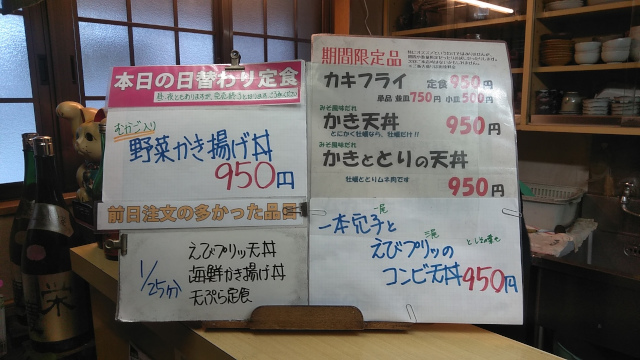 本日の日替わり定食
むかご入り
野菜かき揚げ丼
950円
前日注文の多かった品目
1/25分
えびプリッ天丼
海鮮かき揚げ丼
天ぷら定食
期間限定品
カキフライ 定食950円
単品 並皿750円 小皿500円
みそ風味だれ
かき天丼 950円
とにかく牡蠣なら、牡蠣だけ!!
みそ風味だれ
かきととりの天丼
牡蠣ととりムネ肉です 950円
一尾
一本穴子と
三尾
えびプリッの
コンビ天丼950円
栄